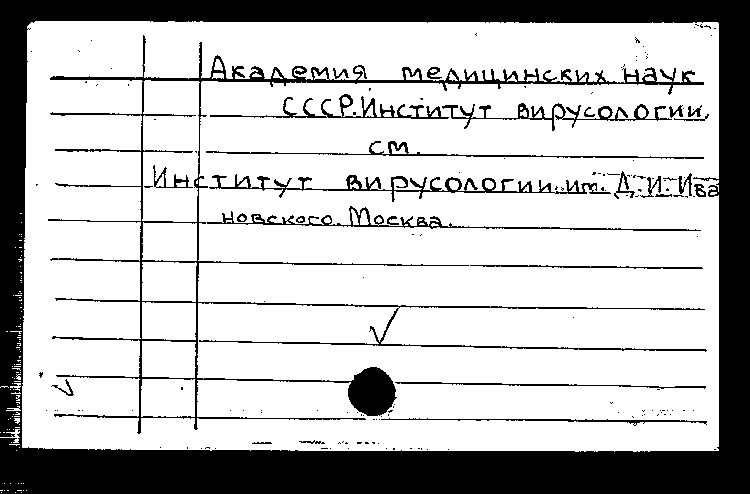 Академия медицинских наук
СССР. Институт вирусологии.
см.
Институт вирусологии им. Д. И. Ива
новского. Москва.